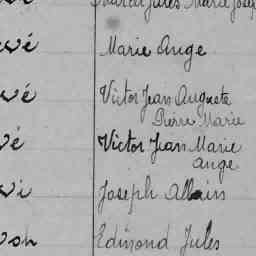 Marie Jose
vé Marie Ange
vé Victor Jean Auguste
Pierre Marie
vé Victor Jean Marie
ange
vi Joseph Allain
Edmond Jules